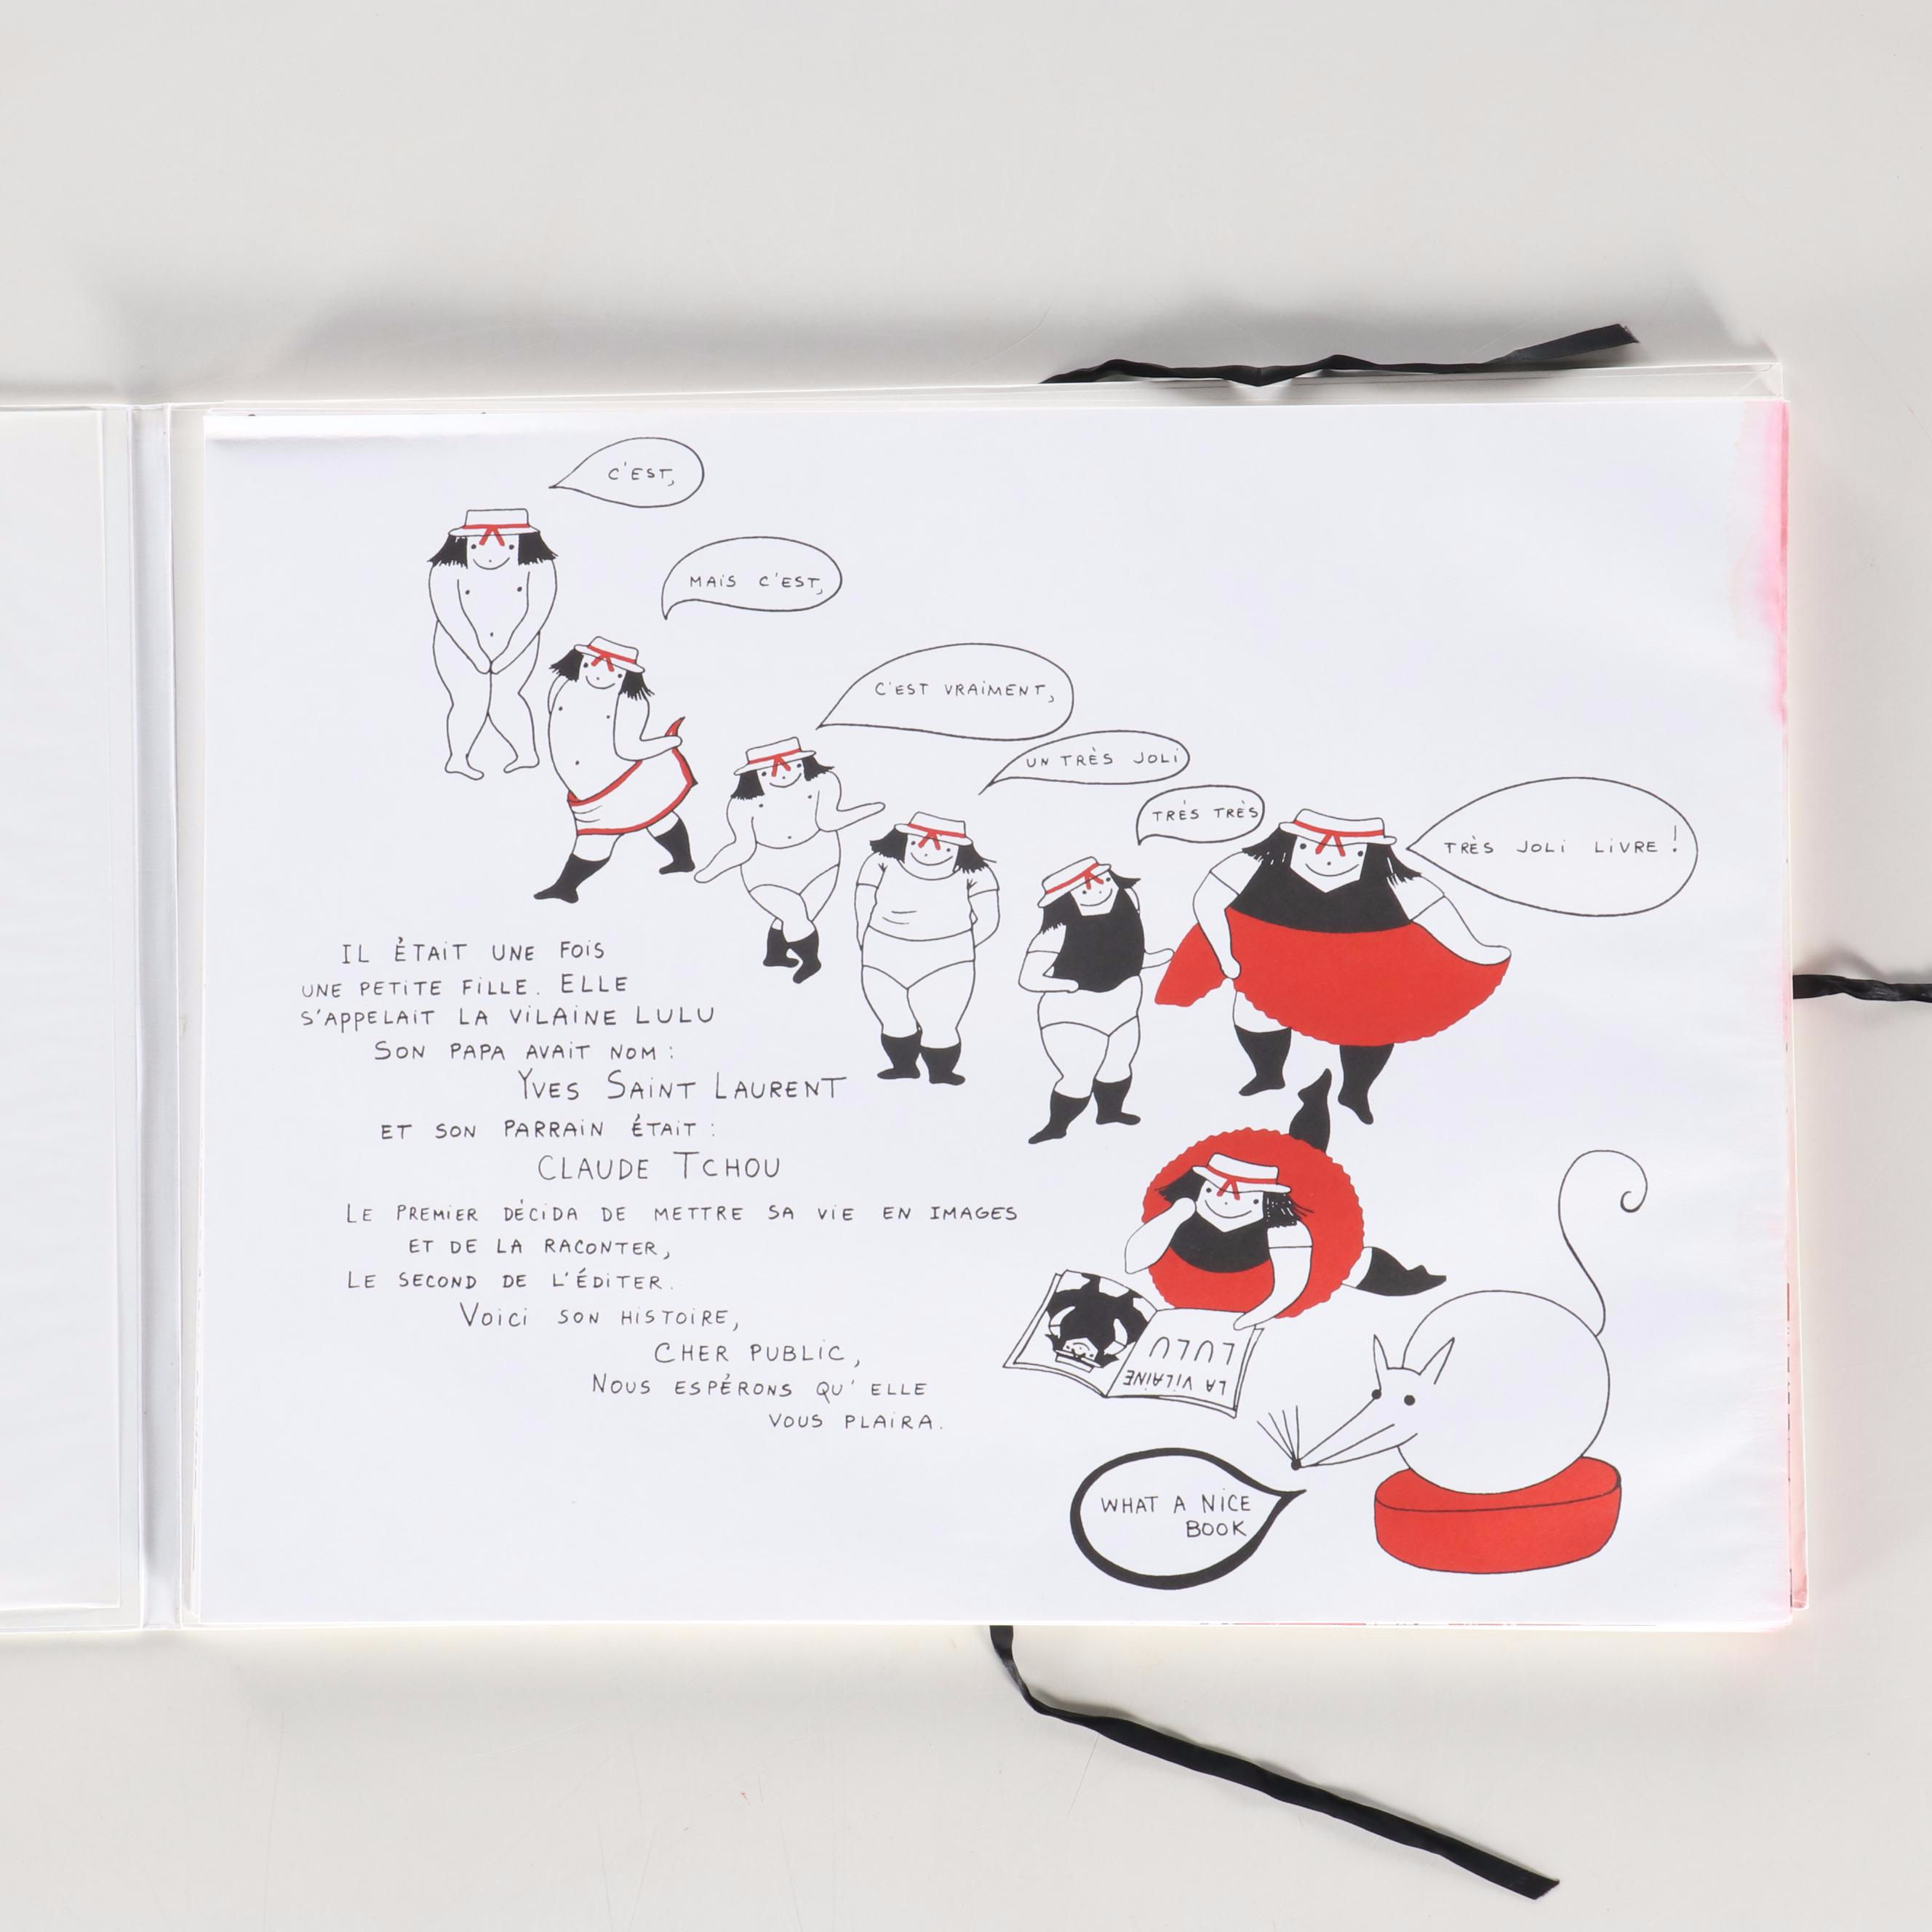 C'EST,
MAIS C'EST,
C'EST VRAIMENT,
UN TRÈS JOLI
TRÈS TRÈS
TRÈS JOLI LIVRE !
IL ÉTAIT UNE FOIS
UNE PETITE FILLE. ELLE
S'APPELAIT LA VILAINE LULU
SON PAPA AVAIT NOM :
YVES SAINT LAURENT
ET SON PARRAIN ÉTAIT :
CLAUDE TCHOU
LE PREMIER DÉCIDA DE METTRE SA VIE EN IMAGES
ET DE LA RACONTER,
LE SECOND DE L'ÉDITER.
VOICI SON HISTOIRE,
CHER PUBLIC,
NOUS ESPÉRONS QU'ELLE
VOUS PLAIRA.
LA VILAINE
LULU
WHAT A NICE
BOOK